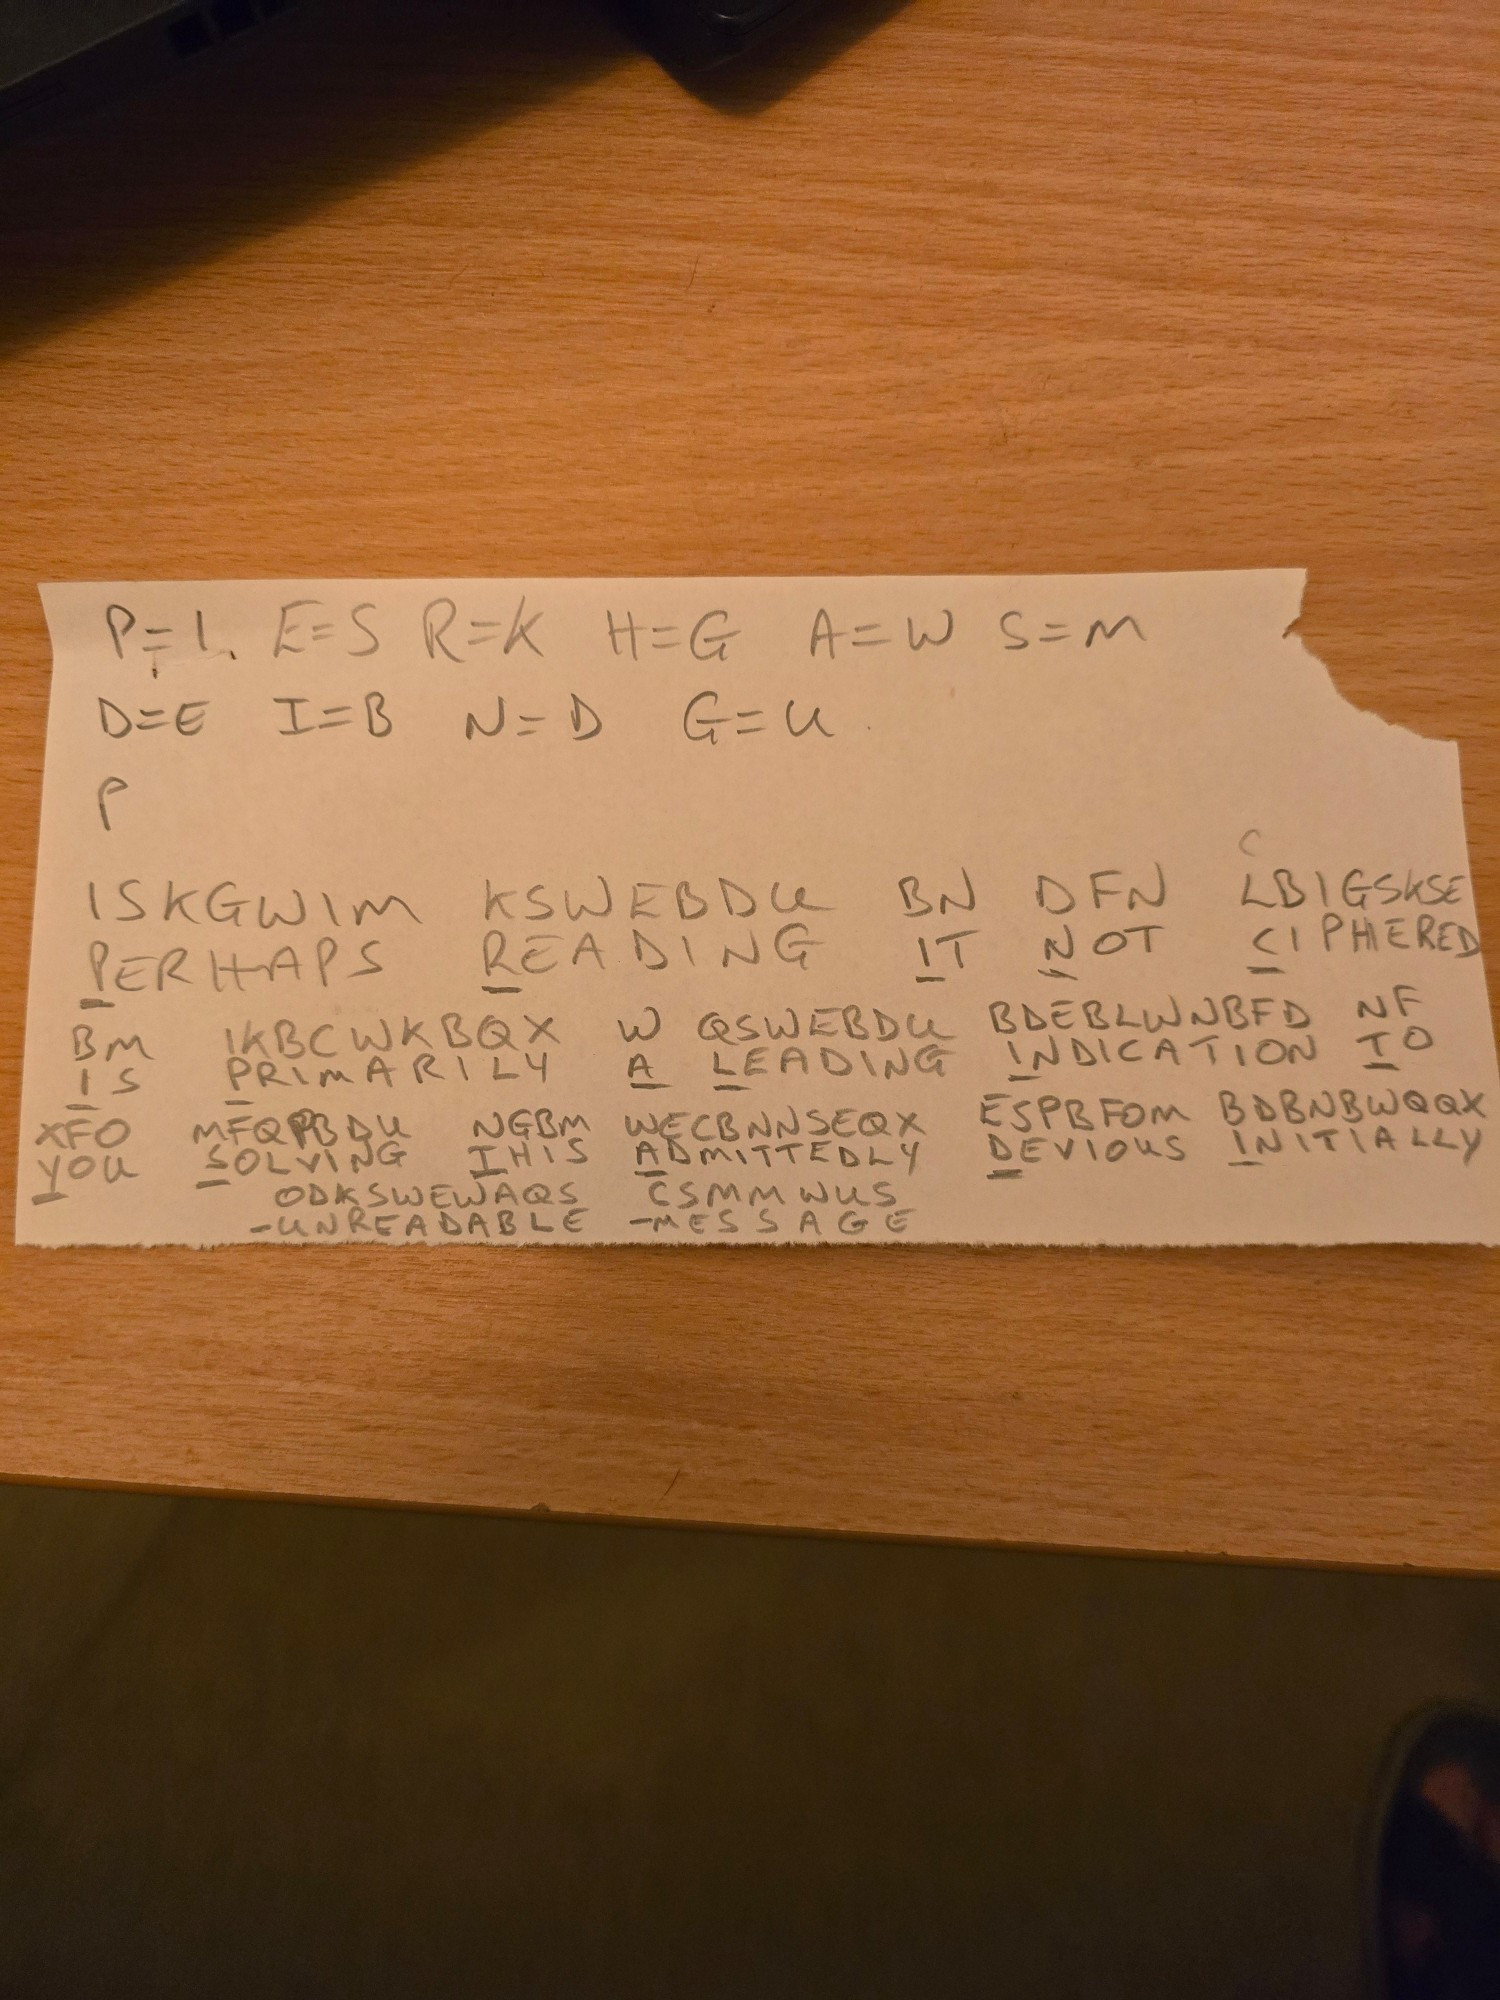 P=I. E=S R=K H=G A=W S=M
D=E I=B N=D G=U.
P
C
ISKGWIM KSWEBDU BN DFN LBIGSKSE
PERHAPS READING IT NOT CIPHERED
BM IKBCWKBQX W QSWEBDU BDEBLWNBFD NF
IS PRIMARILY A LEADING INDICATION TO
XFO MFQPBDU NGBM WECBNNSEQX ESPBFOM BDBNBWQQX
YOU SOLVING THIS ADMITTEDLY DEVIOUS INITIALLY
ODKSWEWAQS CSMMWUS
-UNREADABLE -MESSAGE